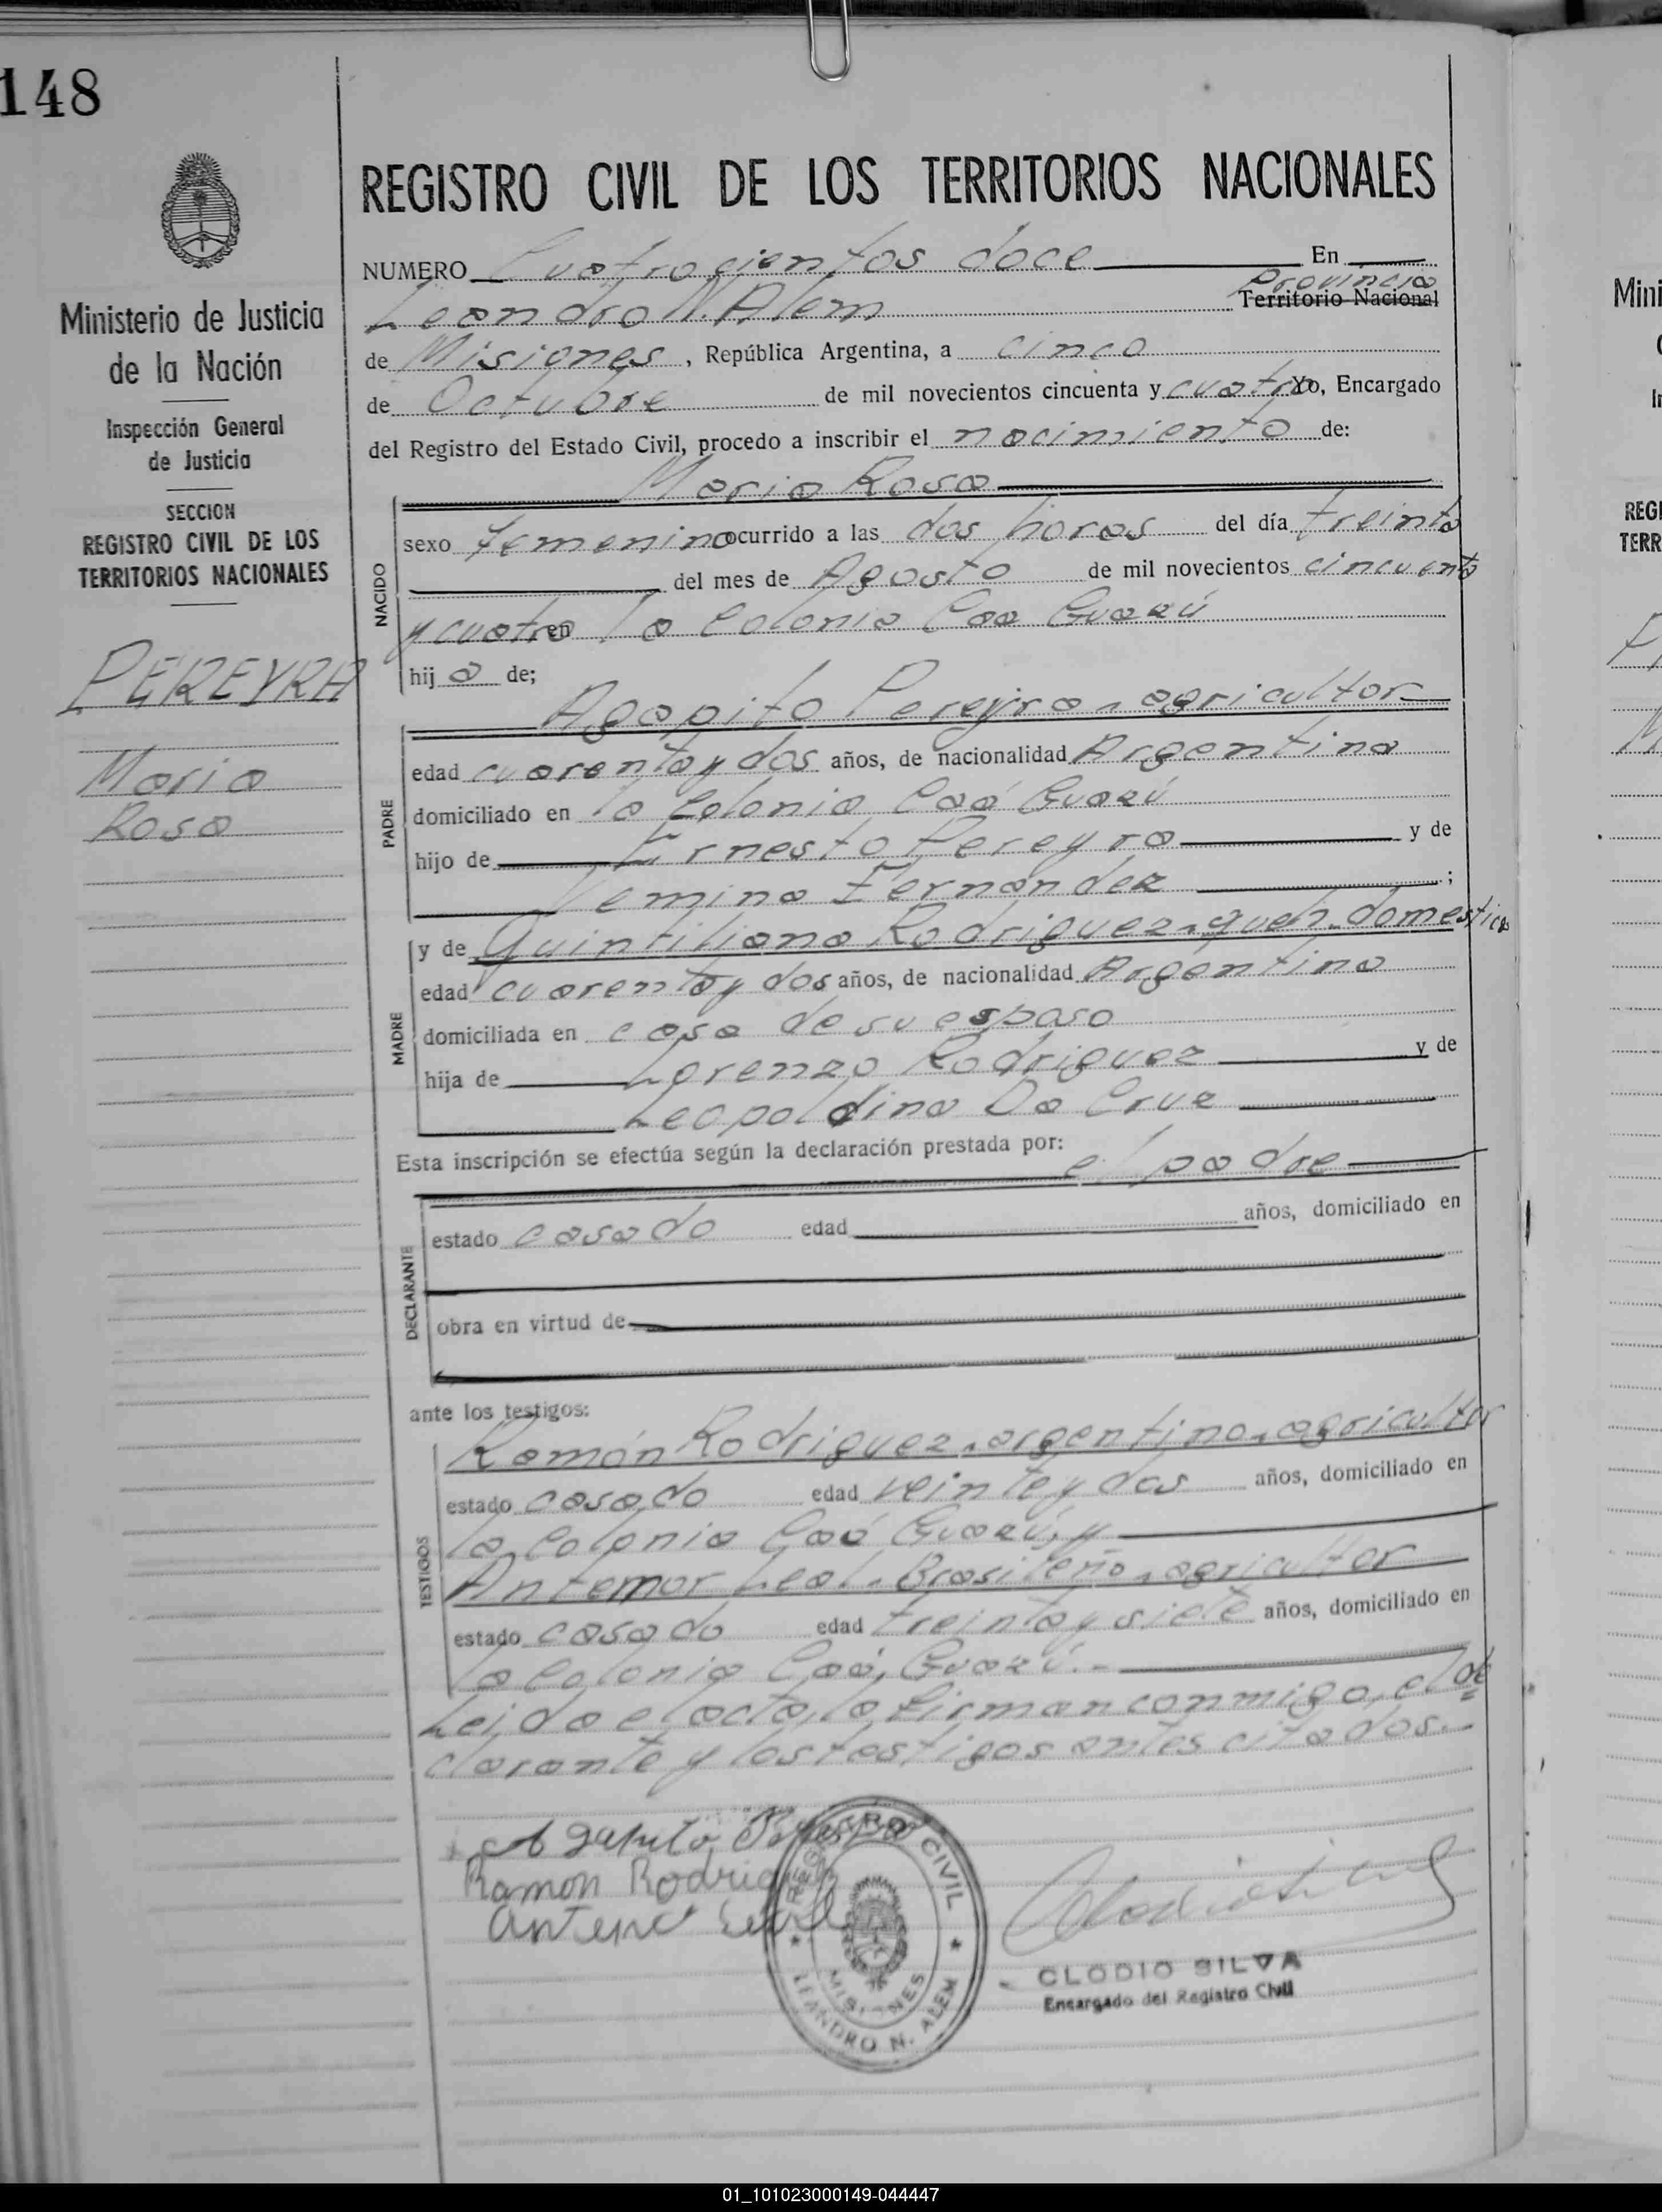 148
REGISTRO CIVIL DE LOS TERRITORIOS NACIONALES
Ministerio de Justicia
de la Nación
Inspección General
de Justicia
SECCION
REGISTRO CIVIL DE LOS
TERRITORIOS NACIONALES
PEREYRA
Maria
Rosa
NUMERO Cuatrocientos doce En
Leandro N. Alem Provincia Territorio Nacional
de Misiones, República Argentina, a cinco
de Octubre de mil novecientos cincuenta y cuatro Yo, Encargado
del Registro del Estado Civil, procedo a inscribir el nacimiento de:
Maria Rosa
NACIDO
sexo femenino ocurrido a las dos horas del día treinta
del mes de Agosto de mil novecientos cincuenta
y cuatro en la Colonia Caa Guazú
hija de;
Agapito Pereyra, agricultor
PADRE
edad cuarenta y dos años, de nacionalidad Argentina
domiciliado en la Colonia Caá Guazú
hijo de Ernesto Pereyra y de
Fernandez;
MADRE
y de Quintiliana Rodriguez, queh. domesticos
edad cuarenta y dos años, de nacionalidad Argentina
domiciliada en casa de su esposo
hija de Lorenzo Rodriguez y de
Leopoldina Da Cruz
Esta inscripción se efectúa según la declaración prestada por: el padre
DECLARANTE
estado casado edad años, domiciliado en
obra en virtud de
ante los testigos:
TESTIGOS
Ramón Rodriguez, argentino, agricultor
estado casado edad veinte y dos años, domiciliado en
la Colonia Caá Guazú, y
Antemor Leal, Brasileño, agricultor
estado casado edad treinta y siete años, domiciliado en
la Colonia Caá, Guazú.-
Leida el acta, la firman conmigo, el de
clarante y los testigos antes citados.-
Agapito Pereyra
Ramon Rodriguez
REGISTRO CIVIL
MISIONES
LEANDRO N. ALEM
CLODIO SILVA
Encargado del Registro Civil
Mini
REGI
TERR
01_101023000149-044447